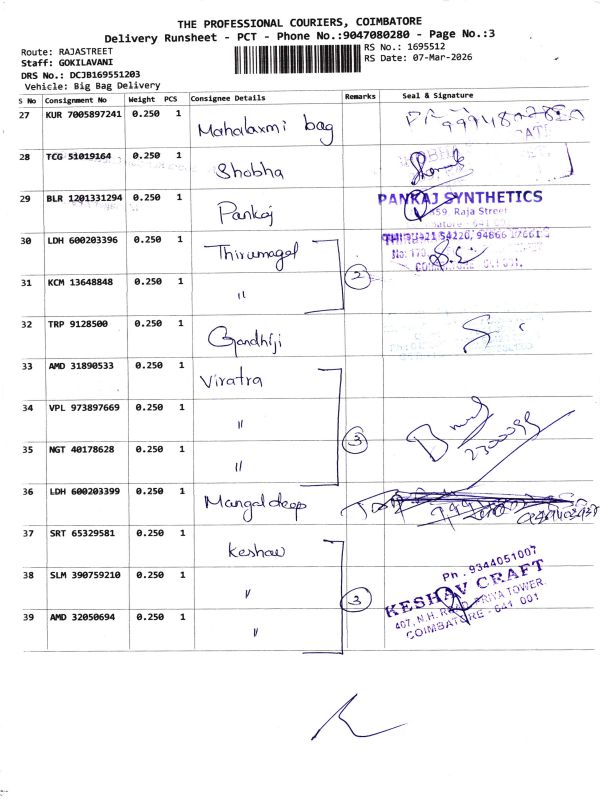 THE PROFESSIONAL COURIERS, COIMBATORE
Delivery Runsheet - PCT - Phone No.:9047080280 - Page No.:3
Route: RAJASTREET
Staff: GOKILAVANI
DRS No.: DCJB169551203
Vehicle: Big Bag Delivery
RS No.: 1695512
RS Date: 07-Mar-2026
S No Consignment No Weight PCS Consignee Details Remarks Seal & Signature
27 KUR 7005897241 0.250 1 Mahalaxmi bag
28 TCG 51019164 0.250 1 Shobha
29 BLR 1201331294 0.250 1 Pankaj
PANKAJ SYNTHETICS
Raja Street
30 LDH 600203396 0.250 1 Thirumagal
2
31 KCM 13648848 0.250 1 "
32 TRP 9128500 0.250 1 Gandhiji
33 AMD 31890533 0.250 1 Viratra
34 VPL 973897669 0.250 1 "
3
35 NGT 40178628 0.250 1 "
36 LDH 600203399 0.250 1 Mangaldeep
37 SRT 65329581 0.250 1 Keshav
38 SLM 390759210 0.250 1 "
3
Ph. 9344051007
KESHAV CRAFT
407, N.H. ROAD, PRIYA TOWER,
COIMBATORE - 641 001
39 AMD 32050694 0.250 1 "